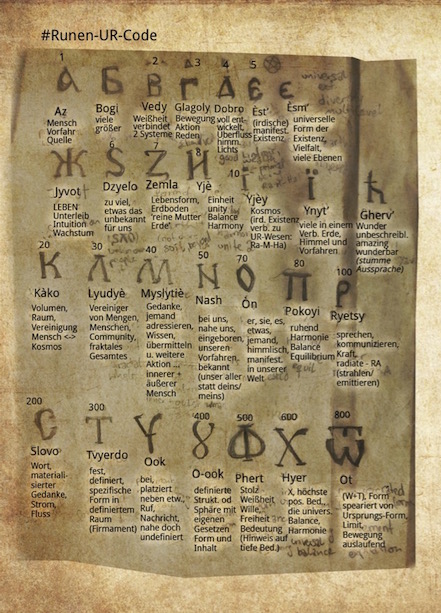 #Runen-UR-Code
1 2 3 4 5
А Б В Г Д Є Є
Az Bogi Vedy Glagoly Dobro Èst' Ësm'
Mensch
Vorfahr
Quelle
viele
größer
Weißheit
verbindet
2 Systeme
Bewegung
Aktion
Reden
voll ent-
wickelt,
Überfluss
himm.
Lichts
(irdische)
manifest.
Existenz
universelle
Form der
Existenz
Vielfalt,
viele Ebenen
6 7 8 10
Ж Ѕ Z И Ї ї Ћ
Jyvot Dzyelo Zemla Yjè Yjèy Ynyt' Gherv'
LEBEN
Unterleib
Intuition
Wachstum
zu viel,
etwas das
unbekannt
für uns
Lebensform,
Erdboden
reine Mutter
Erde'.
Einheit
unity
Balance
Harmony
Kosmos
(ird. Existenz
verb. zu
UR-Wesen:
Ra-M-Ha)
viele in einem
verb. Erde,
Himmel und
Vorfahren
Wunder
unbeschreibl.
amazing
wunderbar
(stumme
Aussprache)
20 30 40 50 70 80 100
К Л М N О П Р
Kàko Lyudyè Myslytiè Nash Ón Pokoyi Ryetsy
Volumen,
Raum,
Vereinigung
Mensch <->
Kosmos
Vereiniger
von Mengen,
Menschen,
Community,
fraktales
Gesamtes
Gedanke,
jemand
adressieren,
Wissen,
übermitteln
u. weitere
Aktion ...
innerer +
äußerer
Mensch
bei uns,
nahe uns,
eingeboren,
unseren
Vorfahren,
bekannt
(unser aller
statt deins/
meins)
er, sie, es,
etwas,
jemand,
himmlisch.
manifest.
in unserer
Welt
ruhend
Harmonie
Balance
Equilibrium
sprechen,
kommunizieren,
Kraft,
radiate - RA
(strahlen/
emittieren)
200 300 400 500 600 800
С Т Ү Ȣ Ф Х Ѿ
Slovo Tvyerdo Ook O-ook Phert Hyer Ot
Wort,
materiali-
sierter
Gedanke,
Strom,
Fluss
fest,
definiert,
spezifische
Form in
definiertem
Raum
(Firmament)
bei,
platziert
neben etw.,
Ruf,
Nachricht,
nahe doch
undefiniert
definierte
Strukt. od
Sphäre mit
eigenen
Gesetzen
Form und
Inhalt
Stolz
Weißheit
Wille,
Freiheit
Bedeutung
(Hinweis auf
tiefe Bed.)
X, höchste
pos. Bed.,
die univers.
Balance,
Harmonie
(W+T), Form
speariert von
Ursprungs-Form,
Limit,
Bewegung
auslaufend